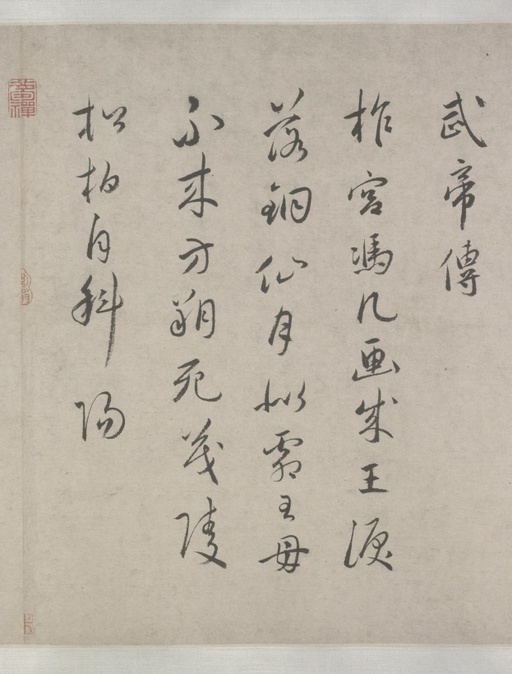 武帝傳
柞宮馮几画成王淚
落銅仙月似霜王母
不来方朔死茂陵
松柏自斜陽